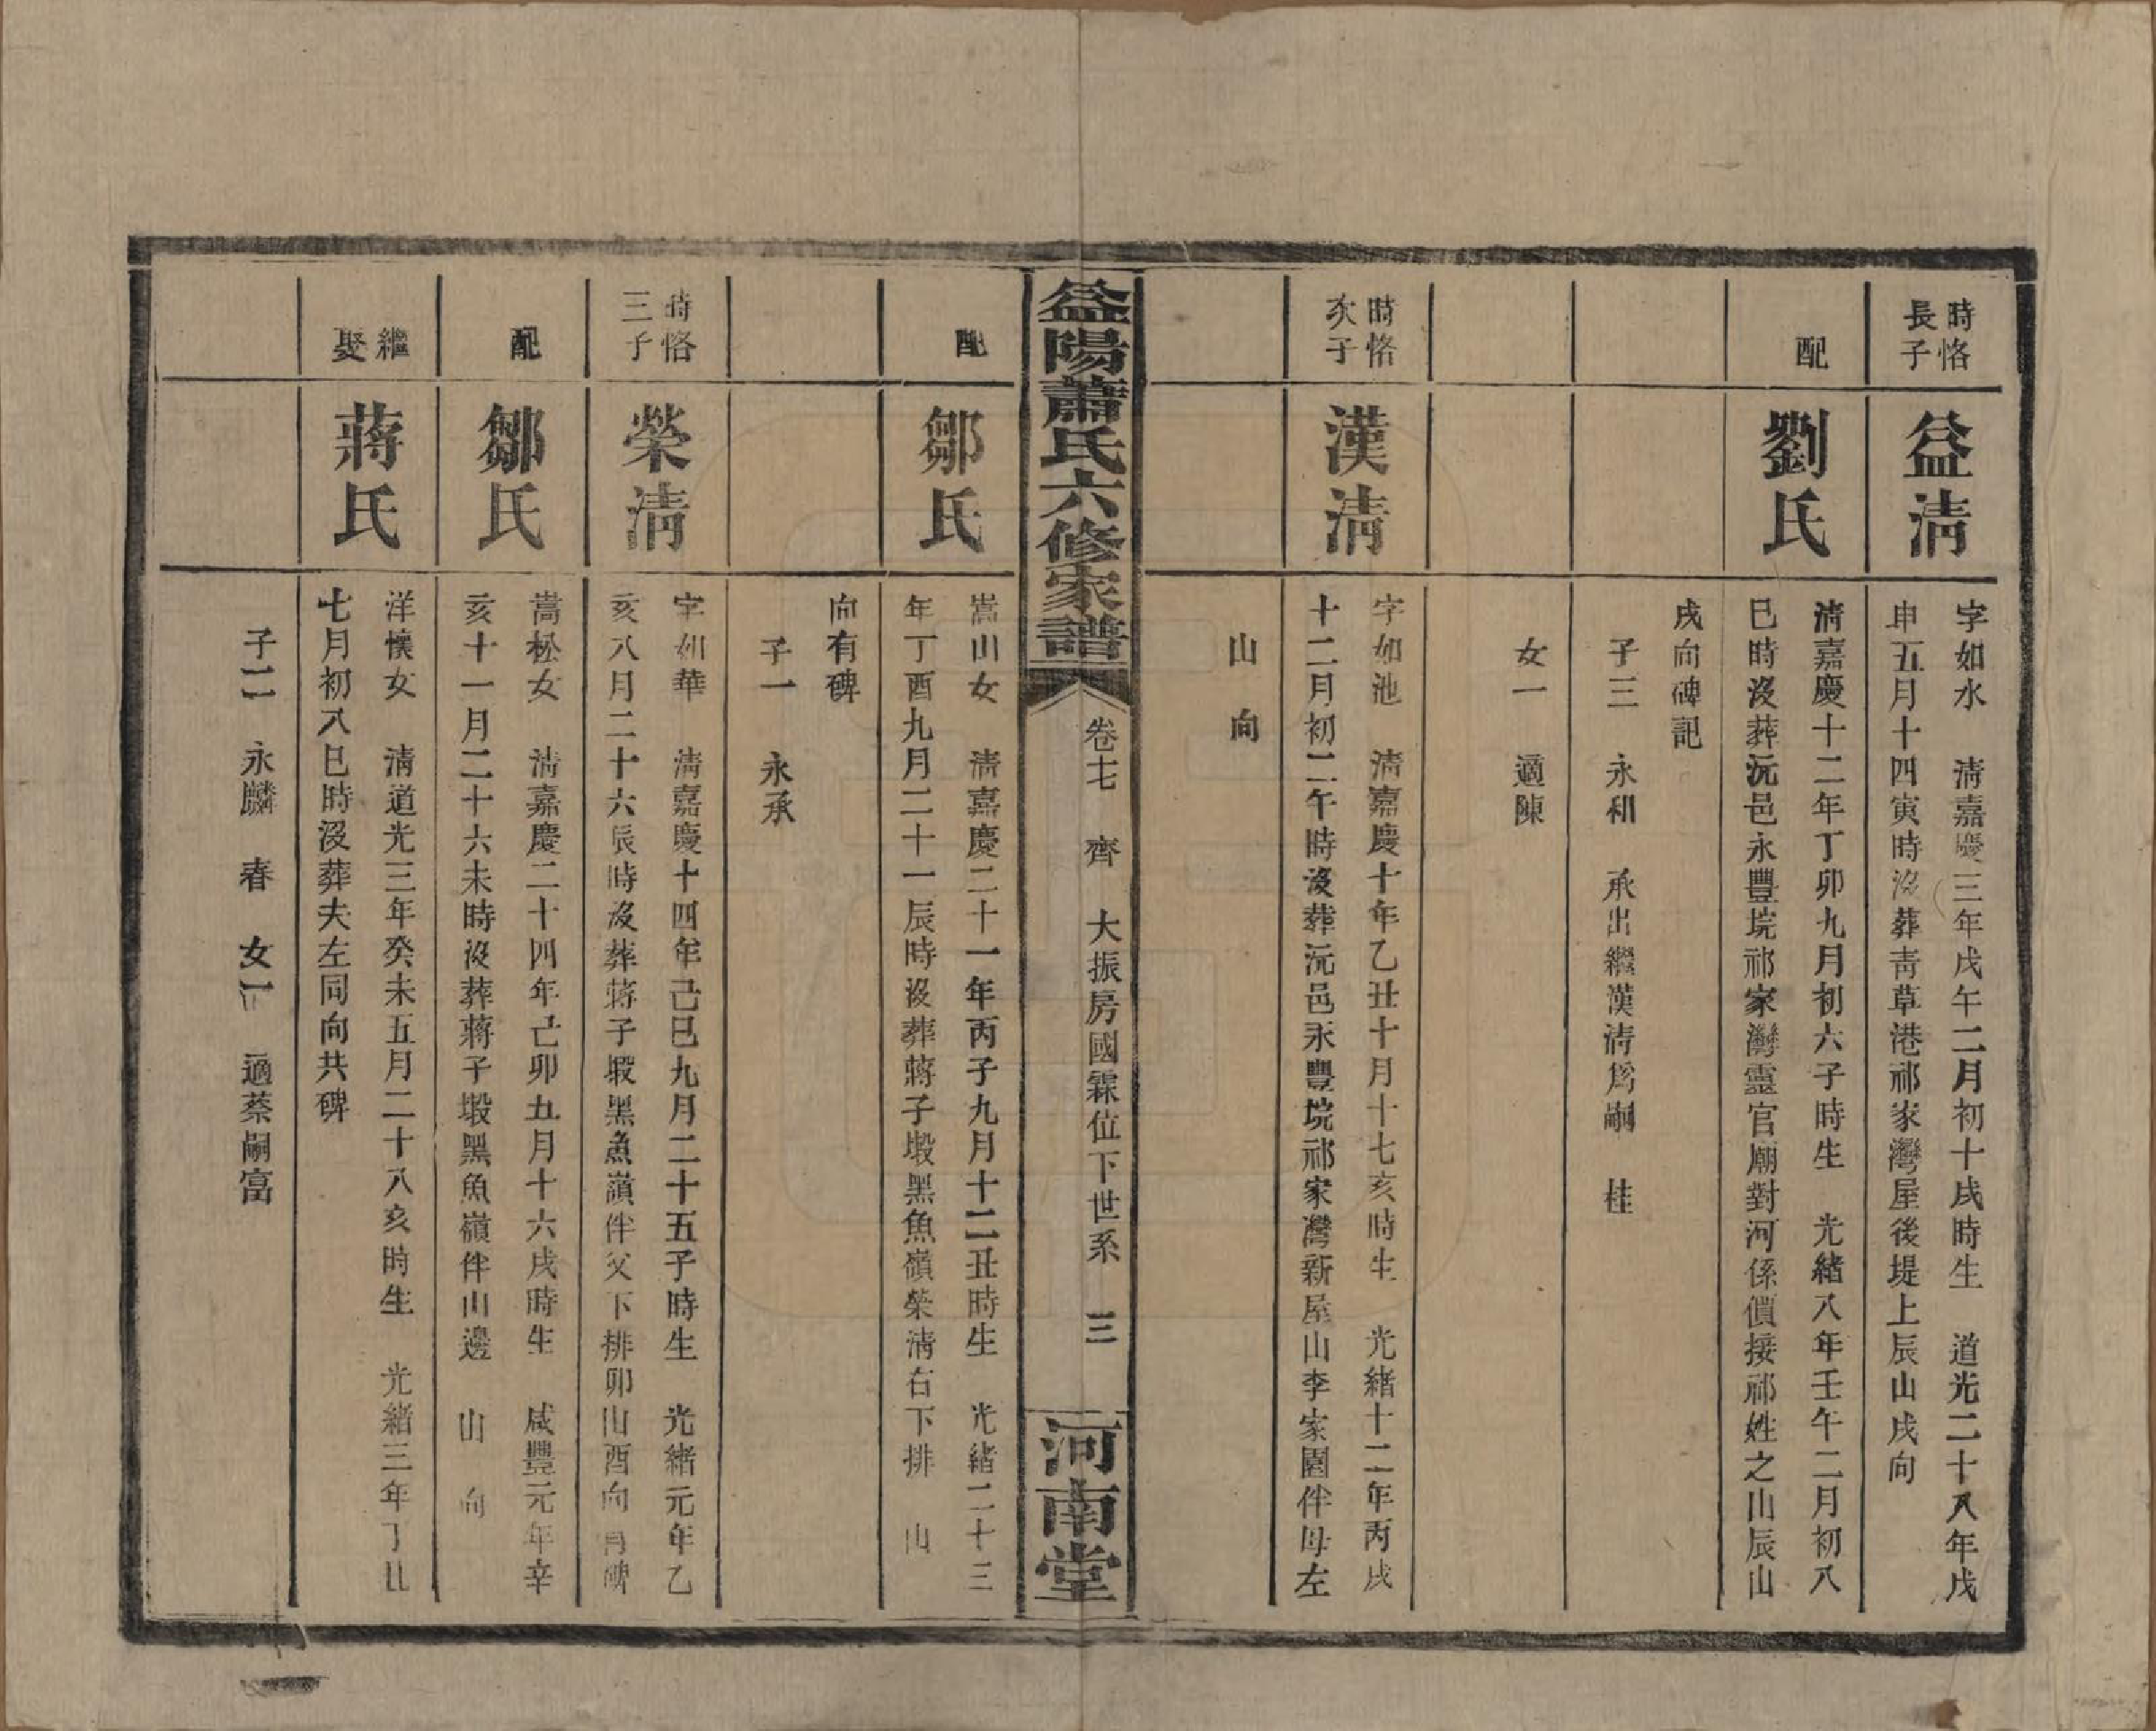 時恪
長子
益清
字如水　清嘉慶三年戊午二月初十戌時生　道光二十八年戊
申五月十四寅時沒葬青草港祁家灣屋後堤上辰山戌向
配
劉氏
清嘉慶十二年丁卯九月初六子時生　光緒八年壬午二月初八
巳時沒葬沅邑永豐垸祁家灣靈官廟對河係價接祁姓之山辰山
戌向碑記
子三　永和　承出繼漢清爲嗣　桂
女一　適陳
時恪
次子
漢清
字如池　清嘉慶十年乙丑十月十七亥時生　光緒十二年丙戌
十二月初二午時沒葬沅邑永豐垸祁家灣新屋山李家園伴母左
山　向
益陽蕭氏六修家譜
卷七　齊　大振房國霖位下世系　三
河南堂
配
鄒氏
嵩山女　清嘉慶二十一年丙子九月十二丑時生　光緒二十三
年丁酉九月二十一辰時沒葬蔣子塅黑魚嶺榮清右下排　山
向有碑
子一　永承
時恪
三子
榮清
字如華　清嘉慶十四年己巳九月二十五子時生　光緒元年乙
亥八月二十六辰時沒葬蔣子塅黑魚嶺伴父下排卯山酉向有碑
配
鄒氏
嵩松女　清嘉慶二十四年己卯五月十六戌時生　咸豐元年辛
亥十一月二十六未時沒葬蔣子塅黑魚嶺伴山邊　山　向
繼
娶
蔣氏
洋懷女　清道光三年癸未五月二十八亥時生　光緒三年丁丑
七月初八巳時沒葬夫左同向共碑
子二　永麟　春　女一　適蔡嗣富